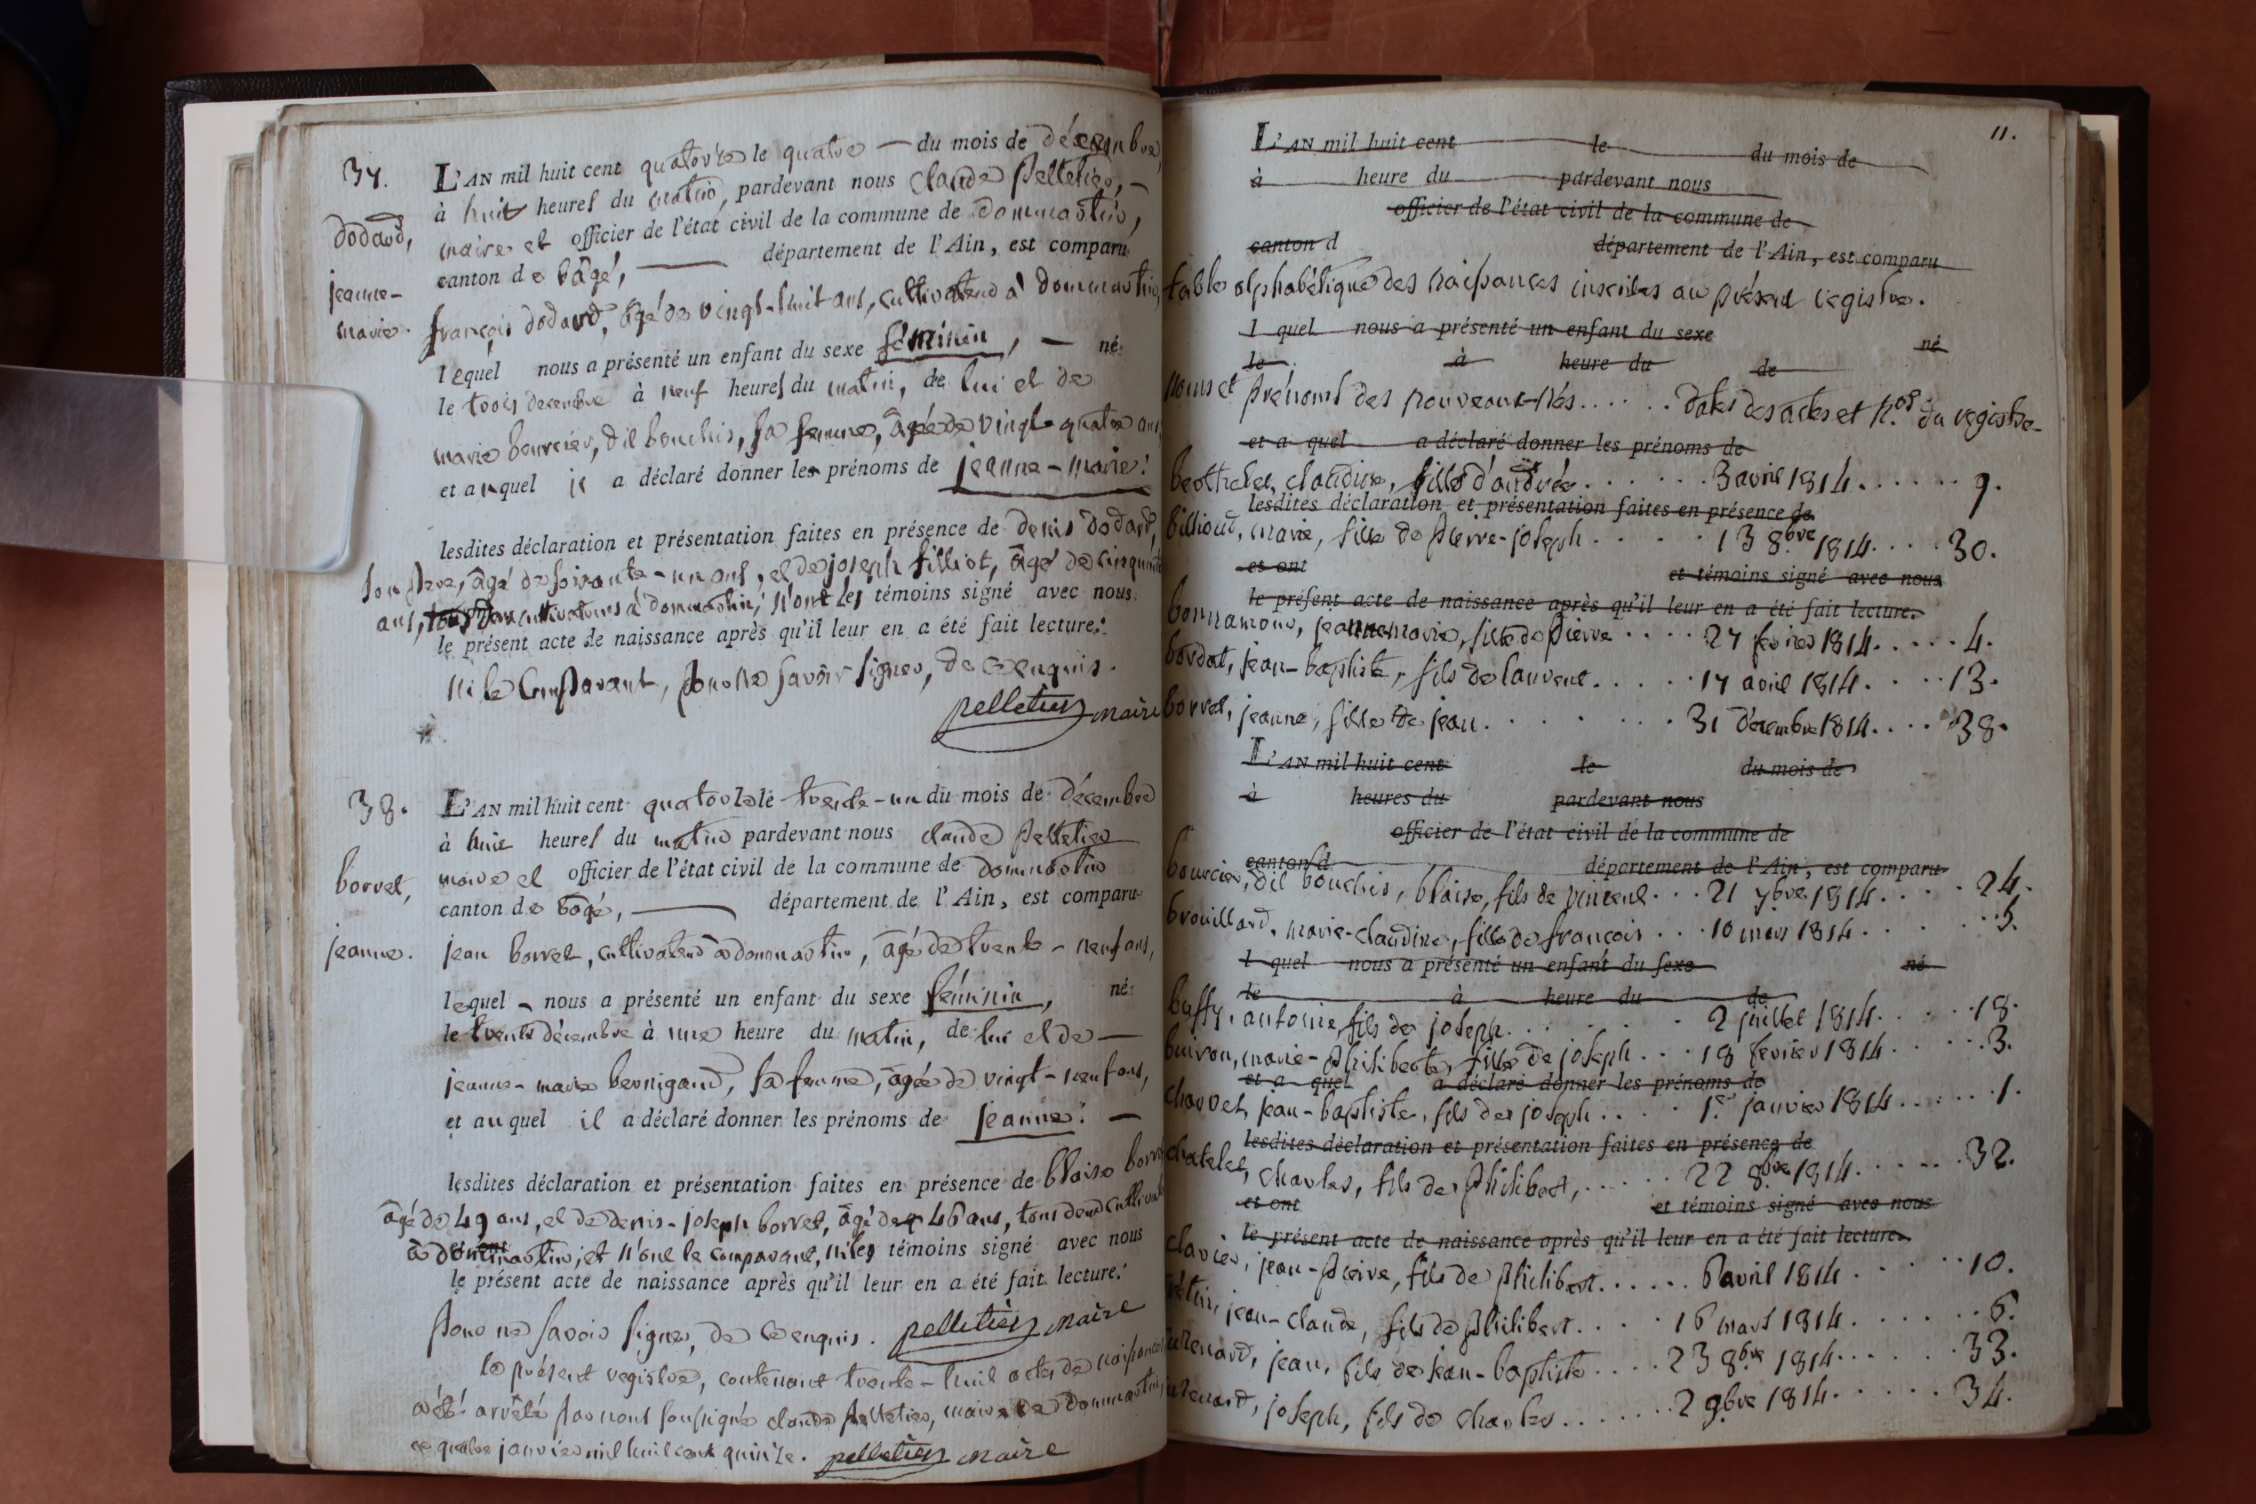 37.
L'AN mil huit cent quatorze le quatre — du mois de décembre,
à huit heures du matin, pardevant nous claude pelletier, —
dodard,
maire et officier de l'état civil de la commune de dommartin,
canton de bâgé, — département de l'Ain, est comparu
jeanne-
marie.
françois dodard, âgé de vingt-huit ans, cultivateur à dommartin,
lequel nous a présenté un enfant du sexe féminin, — né
le trois decembre à neuf heures du matin, de lui et de
marie bourcier, dil bouchis, sa femme, âgée de vingt-quatre ans,
et auquel il a déclaré donner les prénoms de jeanne-marie.
lesdites déclaration et présentation faites en présence de denis dodard,
son père, âgé de soixante-un ans, et de joseph filliot, âgé de cinquante
ans, cultivateurs à dommartin, n'ont les témoins signé avec nous
le présent acte de naissance après qu'il leur en a été fait lecture.
ni le comparant, pour ne savoir signer, de ce enquis.
pelletier maire
38.
L'AN mil huit cent quatorze le trente-un du mois de décembre
à huit heures du matin pardevant nous claude pelletier
borvet,
maire et officier de l'état civil de la commune de dommartin
canton de bâgé, — département de l'Ain, est comparu
jeanne.
jean borvet, cultivateur à dommartin, âgé de trente-neuf ans,
lequel - nous a présenté un enfant du sexe féminin, né
le trente décembre à une heure du matin, de lui et de —
jeanne-marie bernigaud, sa femme, âgée de vingt-neuf ans,
et auquel il a déclaré donner les prénoms de jeanne. —
lesdites déclaration et présentation faites en présence de blaise borvet
âgé de 49 ans, et de denis-joseph borvet, âgé de 46 ans, tous deux cultivateurs
à dommartin, et n'ont le comparant, ni les témoins signé avec nous
le présent acte de naissance après qu'il leur en a été fait lecture.
pour ne savoir signer, de ce enquis. pelletier maire
le présent registre, contenant trente-huit actes de naissances
a été arrêté par nous soussigné claude pelletier, maire de dommartin,
ce quatre janvier mil huit cent quinze. pelletier maire
11.
L'AN mil huit cent le du mois de
à heure du pardevant nous
officier de l'état civil de la commune de
canton d département de l'Ain, est comparu
table alphabétique des naissances inscrites au présent registre.
l quel nous a présenté un enfant du sexe né
le à heure du de
noms et prénoms des nouveaux-nés . . . . . dates des actes et n.os du registre
et a quel a déclaré donner les prénoms de
berthelet, claudine, fille d'andrée . . . . . . 3 avril 1814 . . . . . . 9.
lesdites déclaration et présentation faites en présence de
billioud, marie, fille de pierre-joseph . . . . . 13 8.bre 1814 . . . . 30.
et ont et témoins signé avec nous
le présent acte de naissance après qu'il leur en a été fait lecture.
bonnamour, jeanne marie, fille de pierre . . . . 27 fevrier 1814 . . . . . 4.
bordat, jean-baptiste, fils de laurent . . . . . 17 avril 1814 . . . . 13.
borvet, jeanne, fille de jean . . . . . . . 31 décembre 1814 . . . . 38.
L'AN mil huit cent le du mois de
à heures du pardevant nous
officier de l'état civil de la commune de
canton d département de l'Ain, est comparu
bourcier, dil bouchis, blaise, fils de vincent . . . 21 7.bre 1814 . . . . 24.
brouillard, marie-claudine, fille de françois . . . 10 mars 1814 . . . . . 5.
l quel nous a présenté un enfant du sexe né
le à heure du de
buffy, antoine, fils de joseph . . . . . . 2 juillet 1814 . . . . . 18.
buiron, marie-philiberte, fille de joseph . . . 18 fevrier 1814 . . . . . 3.
et a quel a déclaré donner les prénoms de
charvet, jean-baptiste, fils de joseph . . . . 1.er janvier 1814 . . . . . 1.
lesdites déclaration et présentation faites en présence de
chatelet, charles, fils de philibert, . . . . . 22 8.bre 1814 . . . . . . 32.
et ont et témoins signé avec nous
le présent acte de naissance après qu'il leur en a été fait lecture.
clavier, jean-pierre, fils de philibert . . . . . 6 avril 1814 . . . . . 10.
jean-claude, fils de philibert . . . . 16 mars 1814 . . . . . . 6.
jean, fils de jean-baptiste . . . . 23 8.bre 1814 . . . . . . 33.
joseph, fils de charles . . . . . . . 2 9.bre 1814 . . . . . 34.